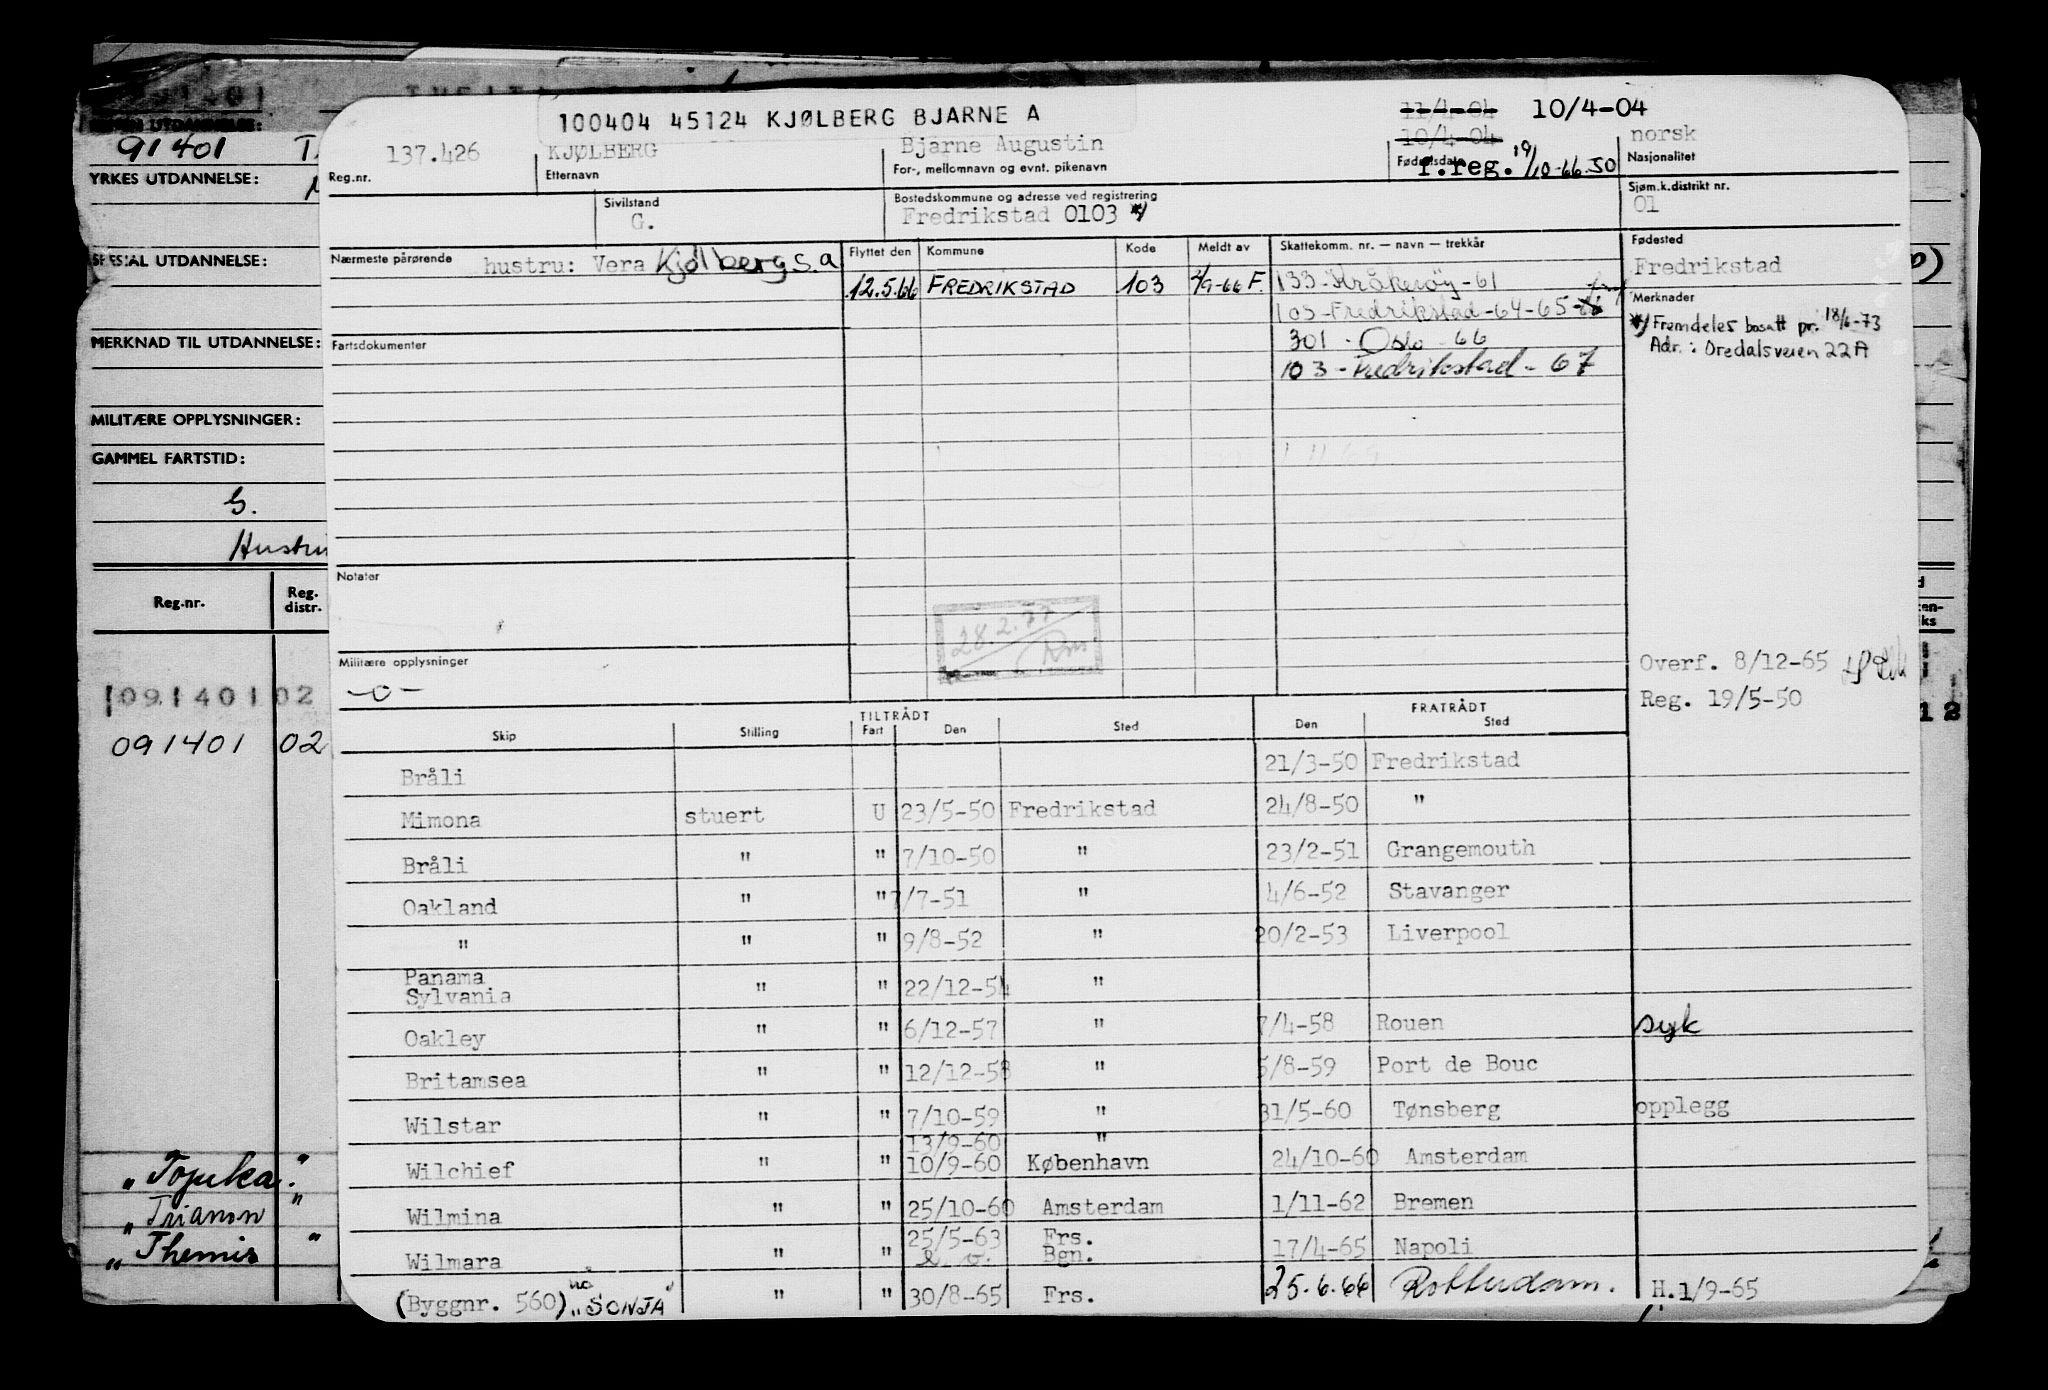 100404 45124 KJØLBERG BJARNE A
11/4-04 10/4-04
10/4-04
137.426 KJØLBERG Bjarne Augustin norsk
Reg.nr. Etternavn For-, mellomnavn og evnt. pikenavn Fødselsdato f.reg. 19/10-66.50 Nasjonalitet
Sivilstand Bostedskommune og adresse ved registrering Sjøm.k.distrikt nr.
G. Fredrikstad 0103 *) 01
Nærmeste pårørende hustru: Vera Kjølberg s.a Flyttet den Kommune Kode Meldt av Skattekomm. nr. — navn — trekkår Fødested
Fredrikstad
12.5.66 FREDRIKSTAD 103 2/9-66 F. 133-Kråkerøy-61
Merknader
103-Fredrikstad-64-65-66
*) Fremdeles bosatt pr. 18/6-73
Fartsdokumenter 301 - Oslo - 66
Adr.: Oredalsveien 22A
103 - Fredrikstad - 67
Notater
28.2.77
Militære opplysninger
—o—
Overf. 8/12-65
Reg. 19/5-50
TILTRÅDT FRATRÅDT
Skip Stilling Fart Den Sted Den Sted
Bråli 21/3-50 Fredrikstad
Mimona stuert U 23/5-50 Fredrikstad 24/8-50 "
Bråli " " 7/10-50 " 23/2-51 Grangemouth
Oakland " " 7/7-51 " 4/6-52 Stavanger
" " " 9/8-52 " 20/2-53 Liverpool
Panama
Sylvania " " 22/12-54 "
Oakley " " 6/12-57 " 7/4-58 Rouen syk
Britamsea " " 12/12-58 " 5/8-59 Port de Bouc
Wilstar " " 7/10-59 " 31/5-60 Tønsberg opplegg
13/9-60 "
Wilchief " " 10/9-60 København 24/10-60 Amsterdam
Wilmina " " 25/10-60 Amsterdam 1/11-62 Bremen
25/5-63 Frs.
Wilmara " " & o. Bgn. 17/4-65 Napoli
(Byggnr. 560) nå "SONJA" " " 30/8-65 Frs. 25.6.66 Rotterdam. H.1/9-65
91401
YRKES UTDANNELSE:
SPESIAL UTDANNELSE:
MERKNAD TIL UTDANNELSE:
MILITÆRE OPPLYSNINGER:
GAMMEL FARTSTID:
G.
Hustru
Reg.nr. Reg. distr.
091401 02
091401 02
"Topeka" "
"Trianon "
"Themis "
12